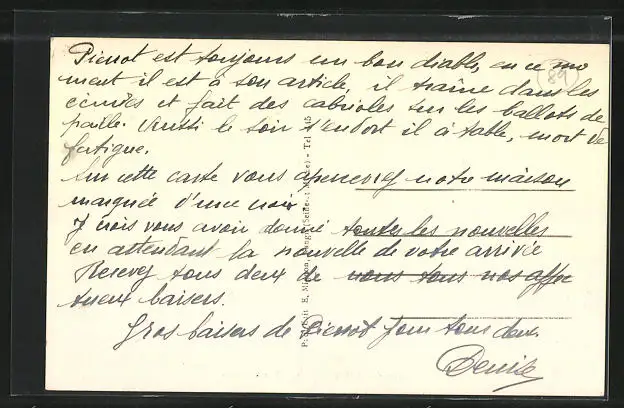 Pierrot est toujours un bon diable, en ce mo
ment il est à son article, il traîne dans les
écuries et fait des cabrioles sur les ballots de
paille. Aussi le soir s'endort il à table, mort de
fatigue.
Sur cette carte vous apercevrez notre maison
marquée d'une croix
Je crois vous avoir donné toutes les nouvelles
en attendant la nouvelle de votre arrivée
Recevez tous deux de nous tous nos affec
tueux baisers.
Gros baisers de Pierrot pour tous deux.
Denise
89